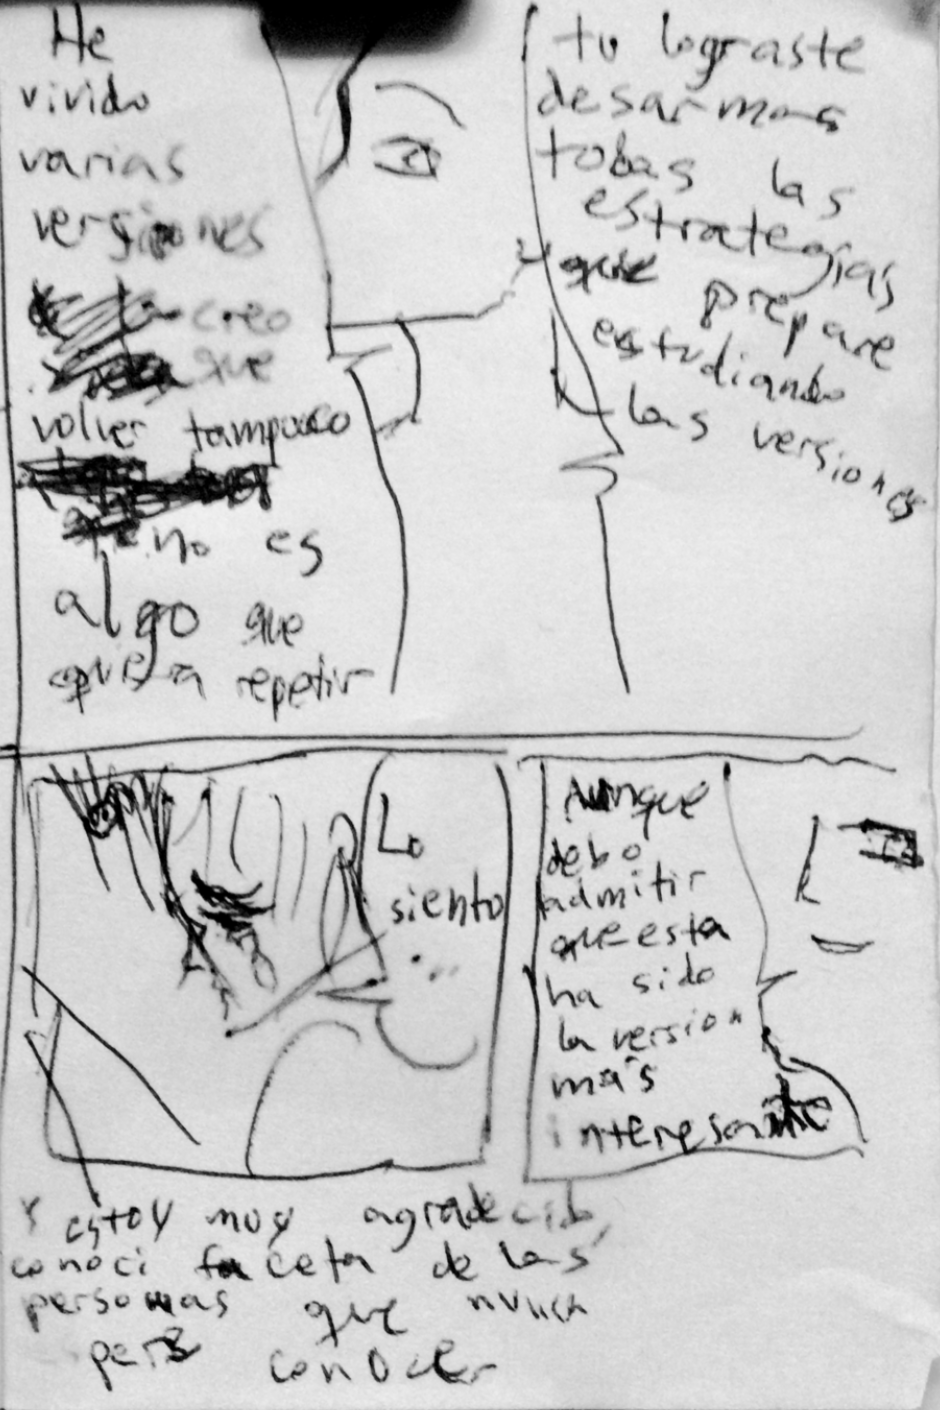 He
vivido
varias
versiones
creo
que
volver tampoco
no es
algo que
quiera repetir
tu lograste
desarmas
todas las
estrategias
que prepare
estudiando
las versiones
Lo
siento
...
Aunque
debo
admitir
que esta
ha sido
la version
más
interesante
Y estoy muy agradecido,
conoci faceta de las
personas que nunca
conocer